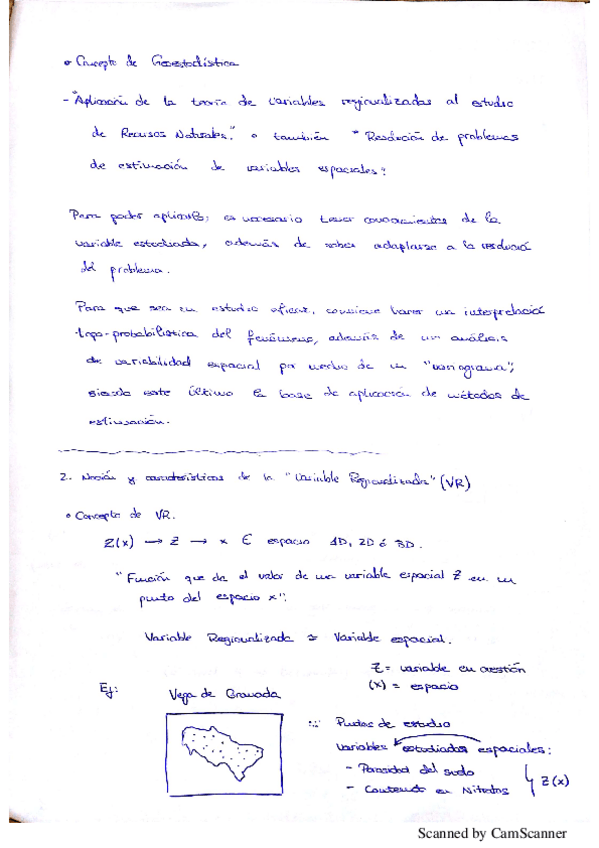 • Concepto de Geoestadística
- "Aplicación de la teoría de variables regionalizadas al estudio
de Recursos Naturales." o también "Resolución de problemas
de estimación de variables espaciales"
Para poder aplicarlo, es necesario tener conocimientos de la
variable estudiada, además de saber adaptarse a la resolució
del problema.
Para que sea un estudio eficaz, conviene hacer un interpretació
-probabilística del fenómeno, además de un análisis
de variabilidad espacial por medio de un "variograma",
siendo este último la base de aplicación de métodos de
estimación.
2. Noción y características de la "Variable Regionalizada" (VR)
• Concepto de VR.
Z(x) → Z → x ∈ espacio 1D, 2D ó 3D.
"Función que da el valor de una variable espacial Z en un
punto del espacio x".
Variable Regionalizada ≈ Variable espacial.
Z = variable en cuestión
(x) = espacio
Ej: Vega de Granada
Puntos de estudio
Variables estudiadas espaciales:
- Porosidad del suelo
- Contenido en Nitratos
Z(x)
Scanned by CamScanner